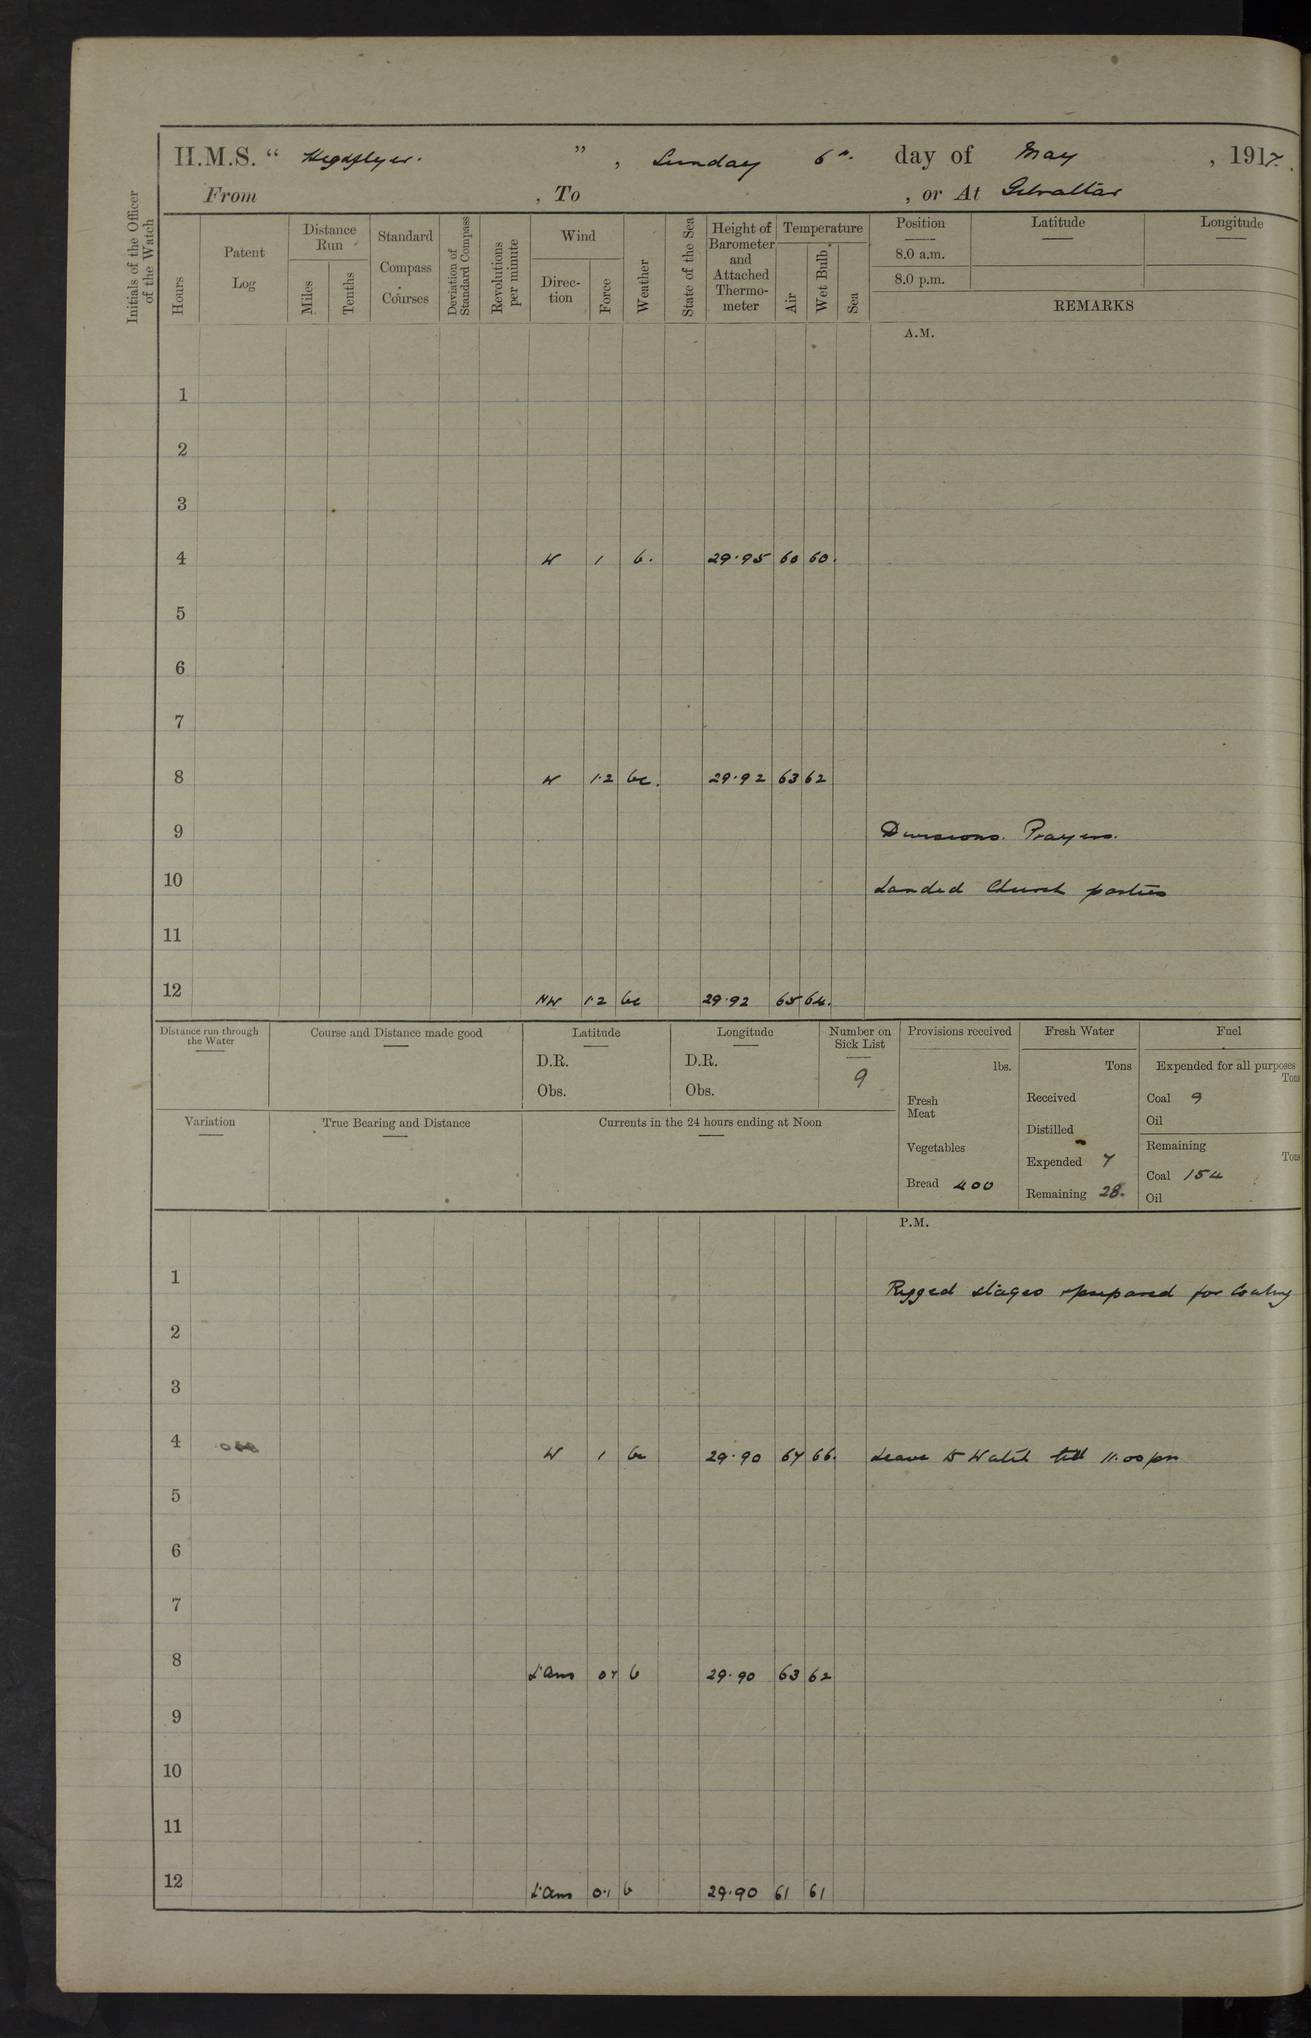 H.M.S. “ Highflyer. ” , Sunday 6th. day of May , 1917.
From , To , or At Gibraltar
Initials of the Officer of the Watch
Hours
Patent Log
Distance Run
Miles
Tenths
Standard Compass Courses
Deviation of Standard Compass
Revolutions per minute
Wind
Direc-tion
Force
Weather
State of the Sea
Height of Barometer and Attached Thermo-meter
Temperature
Air
Wet Bulb
Sea
Position Latitude Longitude
8.0 a.m.
8.0 p.m.
REMARKS
A.M.
1
2
3
4 W 1 b. 29.95 60 60.
5
6
7
8 W 1.2 bc. 29.92 63 62
9 Divisions. Prayers.
10 Landed Church parties
11
12 NW 1.2 bc 29.92 65 64.
Distance run through the Water
Course and Distance made good
Latitude
D.R.
Obs.
Longitude
D.R.
Obs.
Number on Sick List
9
Variation
True Bearing and Distance
Currents in the 24 hours ending at Noon
Provisions received
lbs.
Fresh Meat
Vegetables
Bread 400
Fresh Water
Tons
Received
Distilled
Expended 7
Remaining 28.
Fuel
Expended for all purposes
Tons
Coal 9
Oil
Remaining
Tons
Coal 154
Oil
P.M.
1 Rigged stages & prepared for Coaling
2
3
4 W 1 bc 29.90 67 66. Leave to Watch till 11.00 pm
5
6
7
8 L'airs b 29.90 63 62
9
10
11
12 L'airs 0.1 b 29.90 61 61